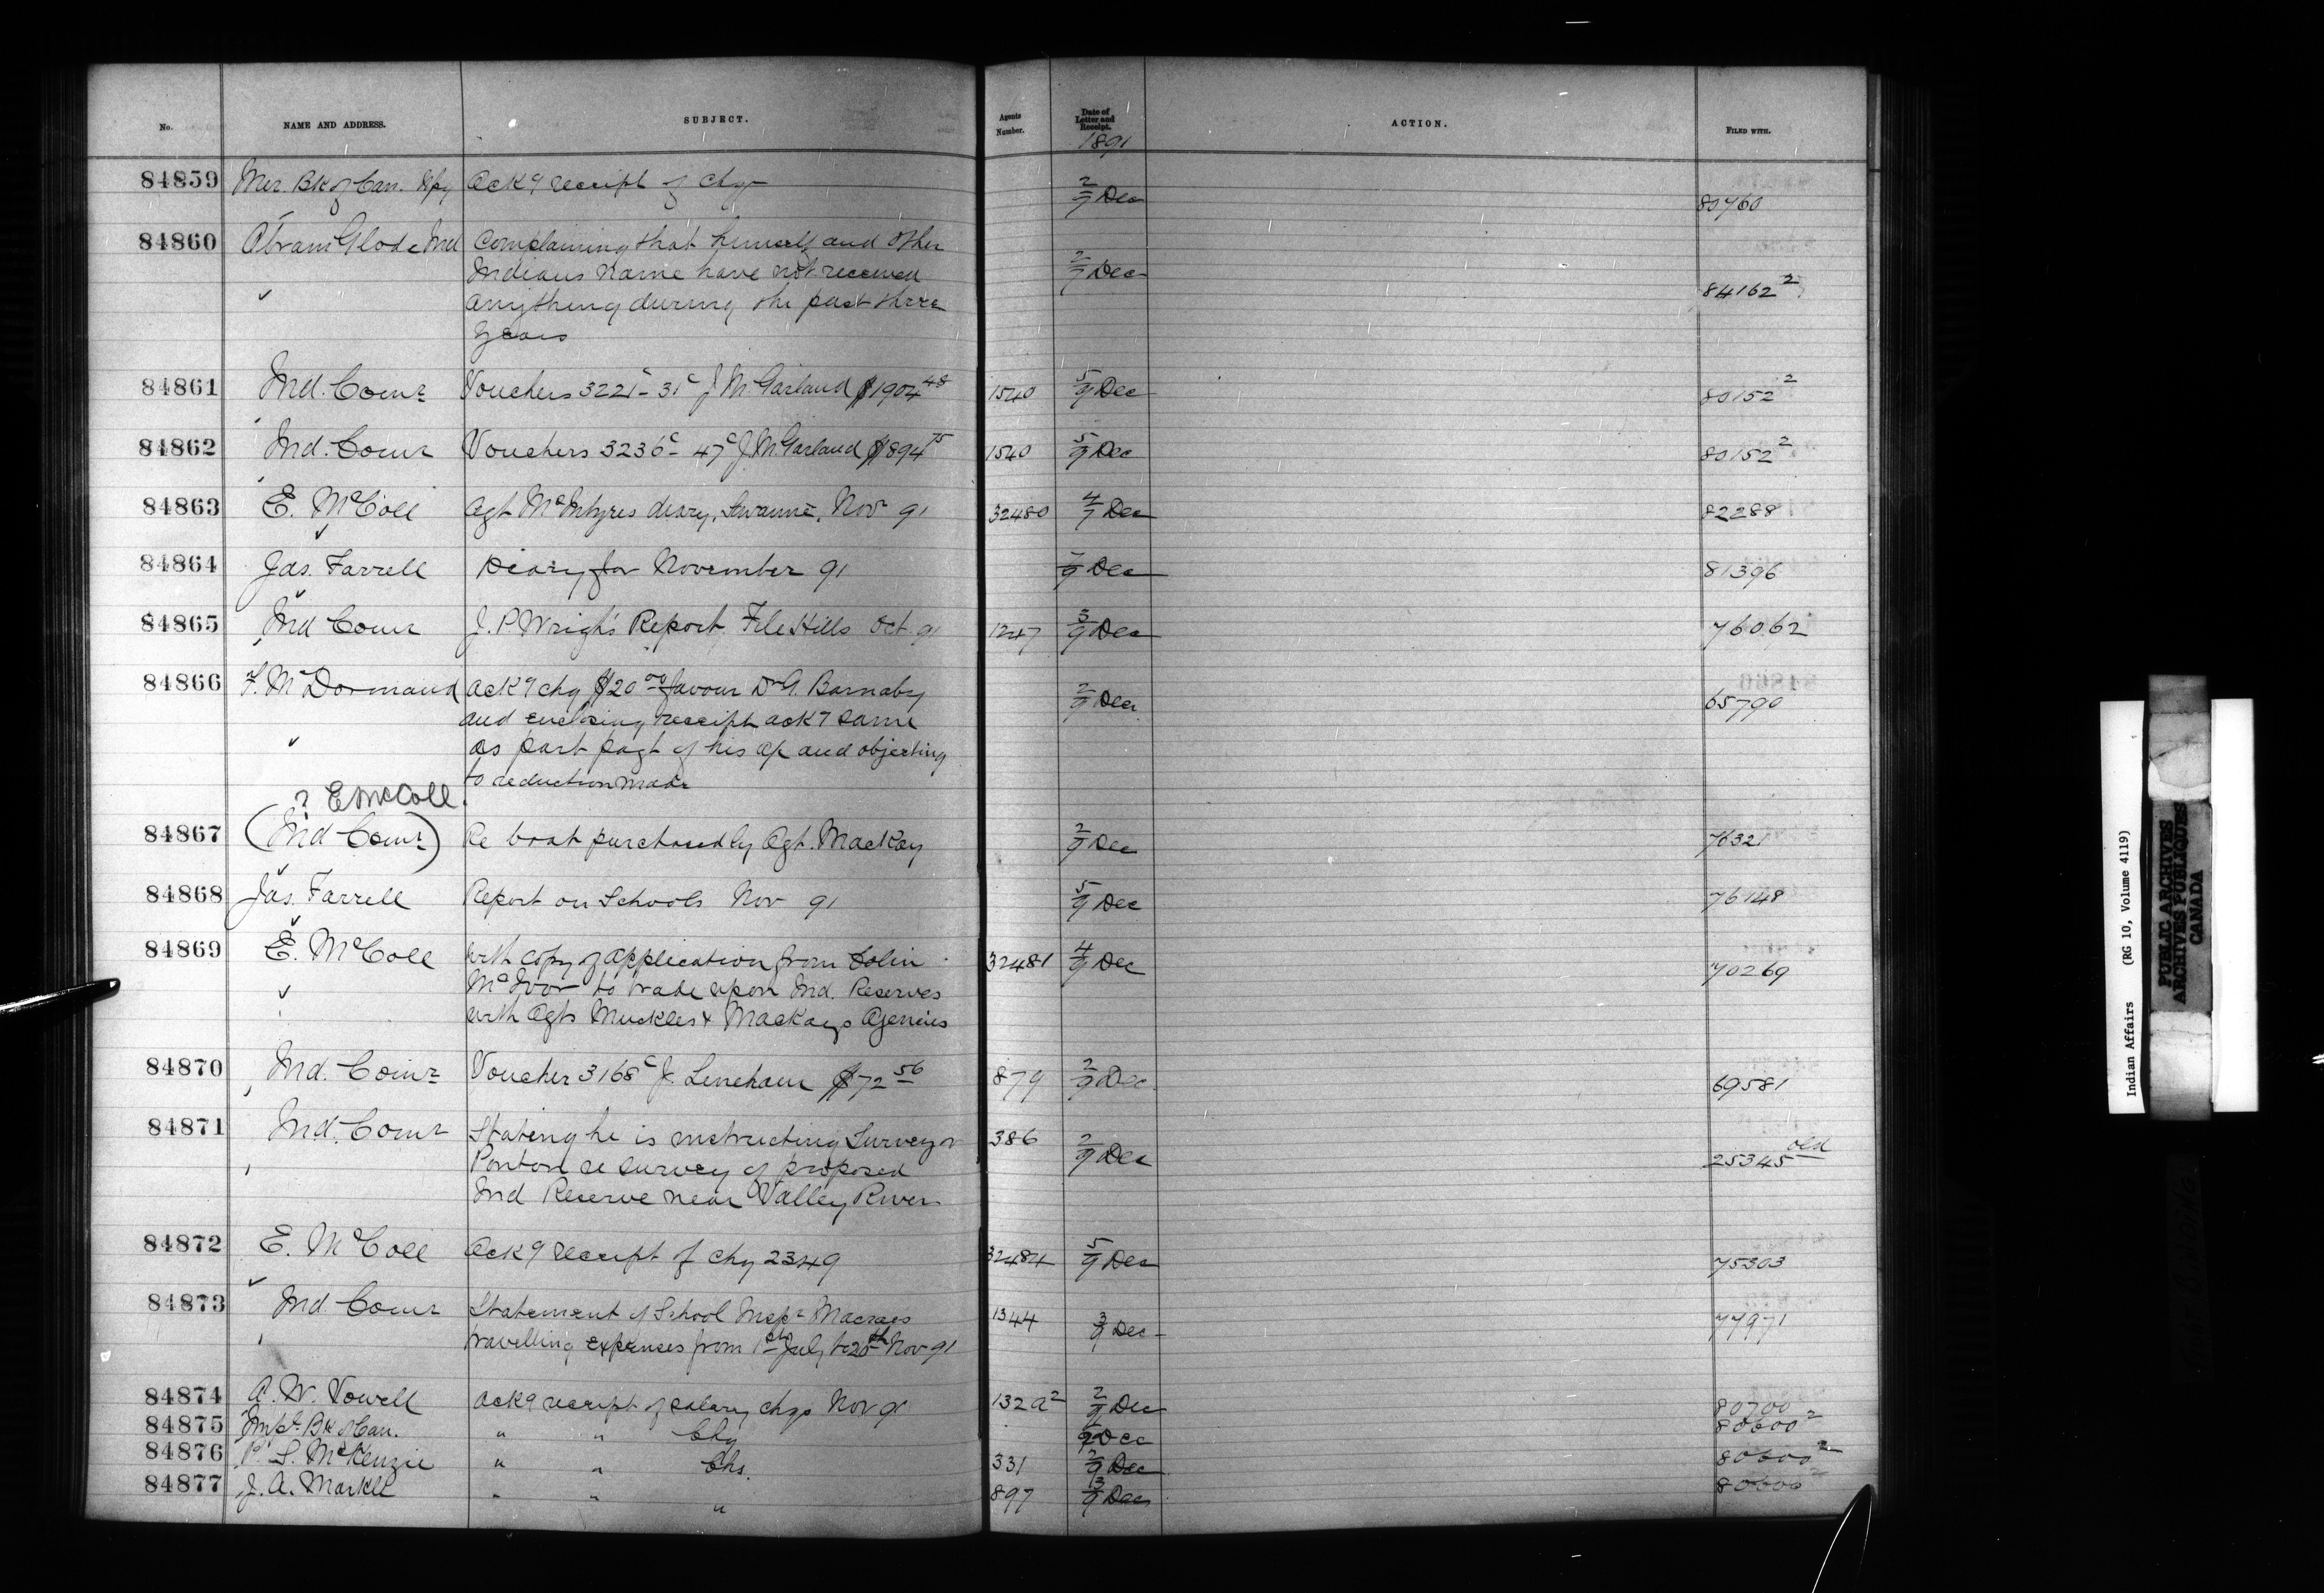 No. NAME AND ADDRESS. SUBJECT. Agents Number. Date of Letter and Receipt. ACTION. FILED WITH.
1891
84859 Mer. Bk of Can. Ack9 receipt of chq 2/7 Dec 80760
84860 Abram Glode Ind Complaining that himself and other 2/7 Dec 84162 2
Indians name have not received
anything during the past three
years
84861 Ind. Comr Vouchers 3221c - 31c J. M. Garland $1904 48 1540 5/9 Dec 80152 2
84862 Ind. Comr Vouchers 3236c - 47c J. M. Garland $894 75 1540 5/9 Dec 80152 2
84863 E. McColl Agt McIntyres diary, Savanne, Nov 91 32480 4/7 Dec 82288
84864 Jas. Farrell Diary for November 91 7/9 Dec 81396
84865 Ind Comr J. P. Wrights Report File Hills Oct 91 1247 3/9 Dec 76062
84866 F. McDormand Ack9 chq $20 00 favour Dr A. Barnaby 2/9 Dec 65790
and enclosing receipt ack9 same
as part pagt of his a/c and objecting
to reduction made
? E McColl.
84867 (Ind Comr) Re boat purchased by Agt. MacKay 2/9 Dec 76321
84868 Jas. Farrell Report on Schools Nov 91 5/9 Dec 76148
84869 E. McColl with copy of application from Colin 32481 4/9 Dec 70269
McIvor to trade upon Ind. Reserves
with Agts Muckles & MacKays Agencies
84870 Ind. Comr Voucher 3168c J. Lineham $72 56 879 2/9 Dec 69581
84871 Ind. Comr Stating he is instructing Surveyor 386 2/9 Dec 25345 old
Ponton re survey of proposed
Ind Reserve near Valley River
84872 E. McColl Ack9 receipt of chq 2349 32484 5/9 Dec 75303
84873 Ind Comr Statement of School Inspr Macraes 1344 3/9 Dec 77971
travelling expenses from 1st July to 20th Nov 91
84874 A. W. Vowell Ack9 receipt of salary chqs Nov 91 132a2 2/9 Dec 80700
84875 Impl. Bk of Can. " " Chq Dec 80600 2
84876 P. S. McKenzie " " Chs. 331 2/9 Dec 80600 2
84877 J. A. Markle " " " 897 3/9 Dec 80600 2
Indian Affairs (RG 10, Volume 4119)
PUBLIC ARCHIVES
ARCHIVES PUBLIQUES
CANADA